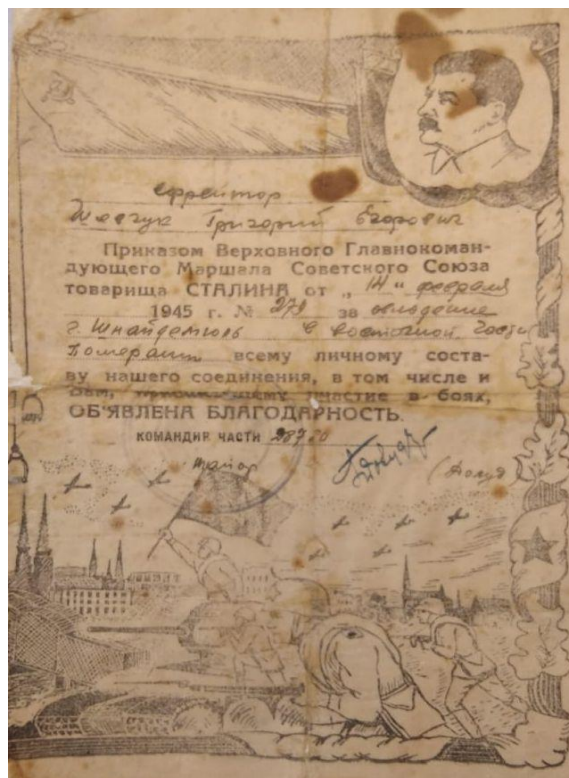 ефрейтор
Шевчук Григорий Егорович
Приказом Верховного Главнокоман-
дующего Маршала Советского Союза
товарища СТАЛИНА от „14" февраля
1945 г. № 279 за овладение
г. Шнайдемюль в восточной части
Померании всему личному соста-
ву нашего соединения, в том числе и
Вам, принимавшему участие в боях,
ОБ'ЯВЛЕНА БЛАГОДАРНОСТЬ.
КОМАНДИР ЧАСТИ
майор